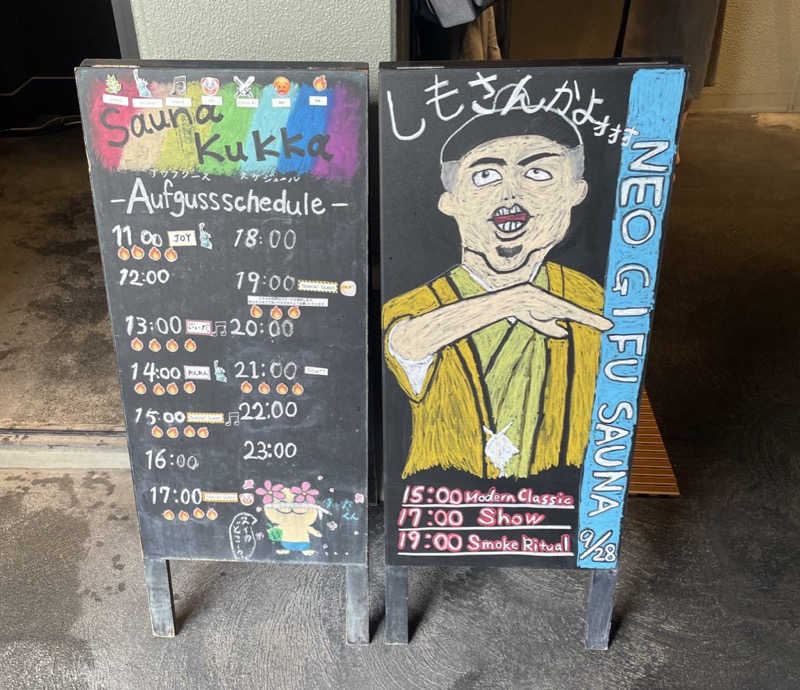 Sauna
Kukka
アウフグース スケジュール
-Aufgussschedule-
11:00 JOY
12:00
13:00
14:00
15:00
16:00
17:00
18:00
19:00
20:00
21:00
22:00
23:00
しもさんかよォォォ
NEO GIFU SAUNA 9/28
15:00 Modern Classic
17:00 Show
19:00 Smoke Ritual